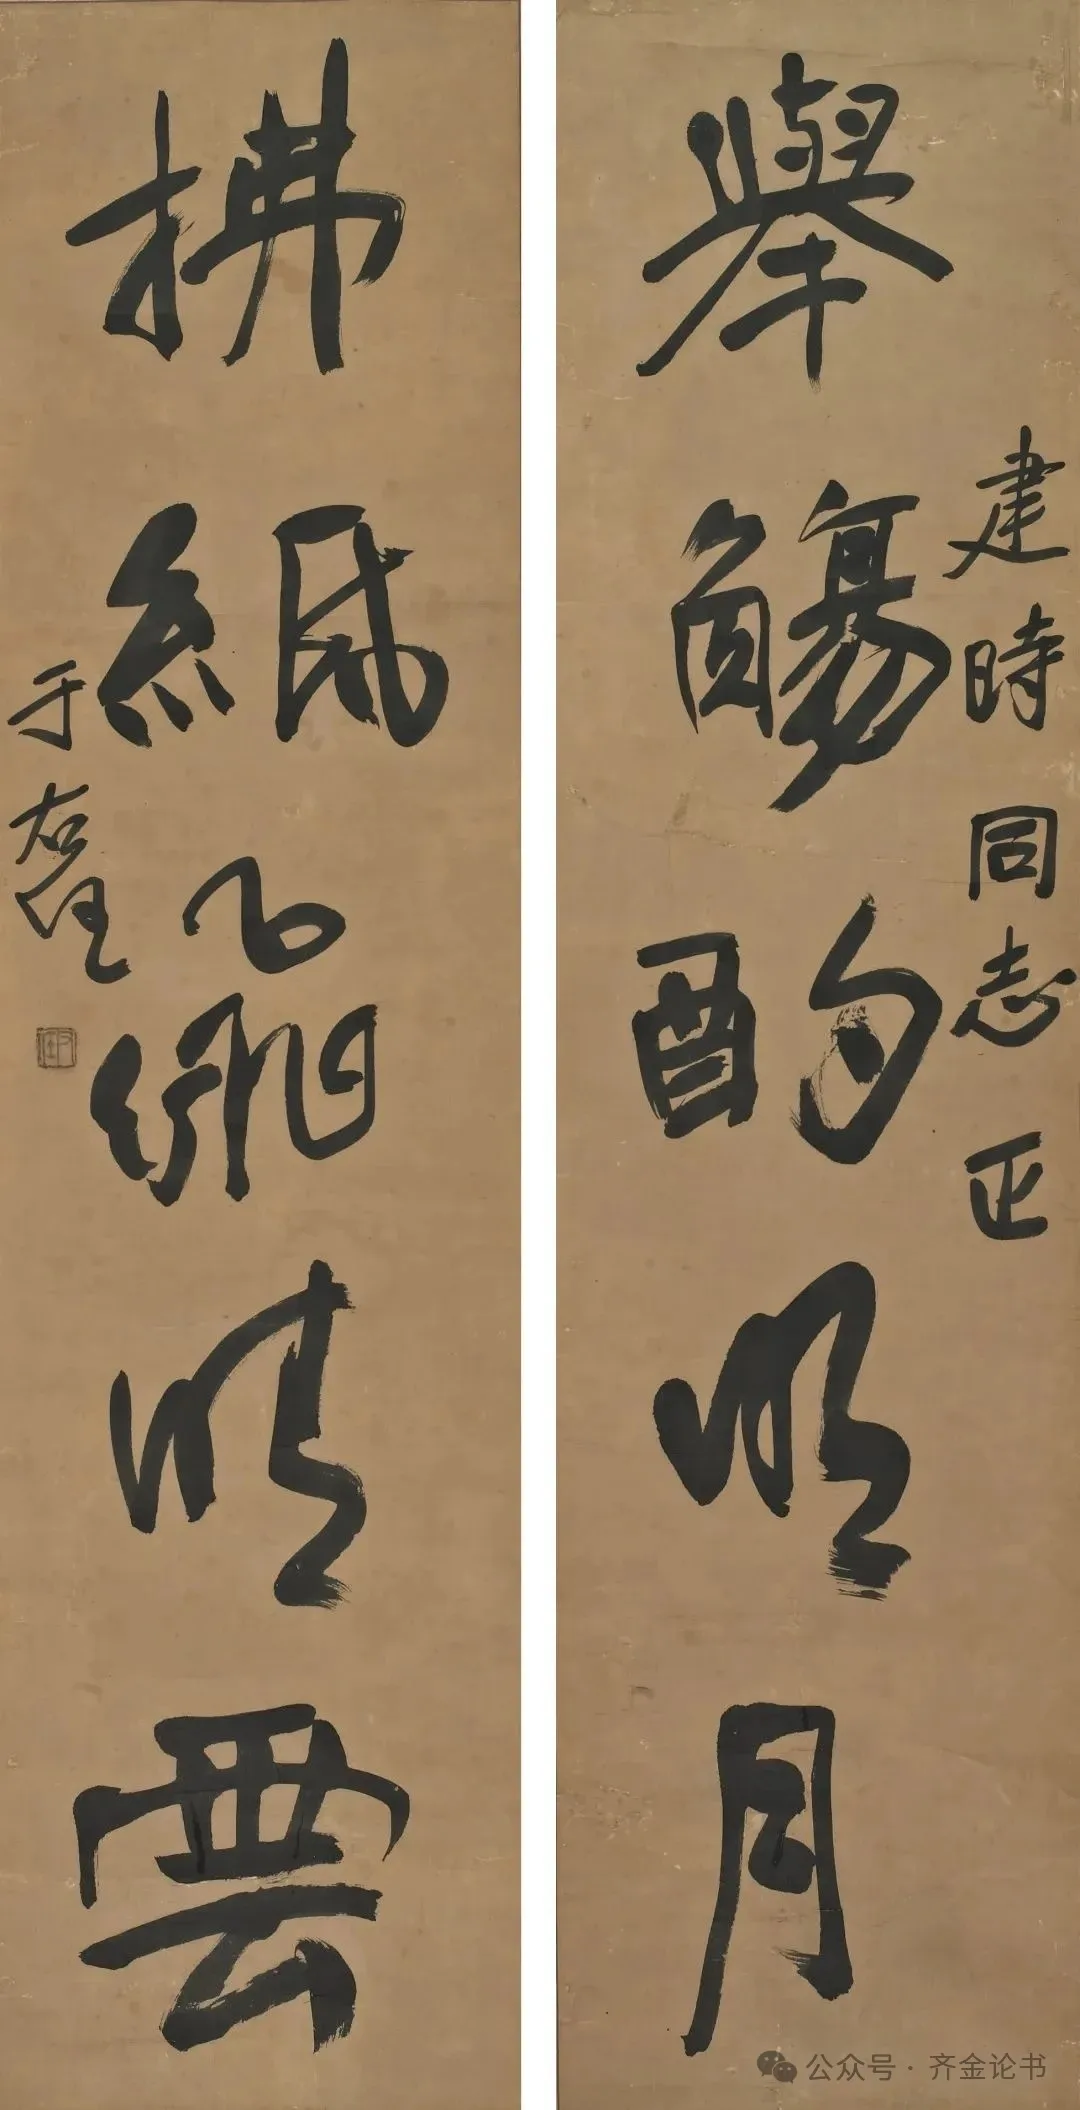 建時同志正
舉觴酌明月
拂紙飛晴雲
于右任
公众号·齐金论书